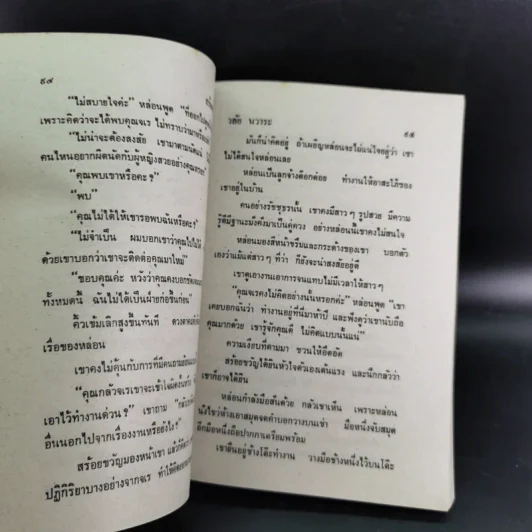 ๙๔
“ไม่สบายใจค่ะ” หล่อนพูด
เพราะคิดว่าจะได้พบคุณจเร ไม่ทราบว่ามา
“ไม่น่าจะต้องสงสัย เขามาตามนัดแน่
คนไหนอยากผิดนัดกับผู้หญิงสวยอย่างคุณ
“คุณพบเขาหรือคะ?”
“พบ”
“คุณไม่ได้ให้เขารอพบฉันหรือคะ?”
“ไม่จำเป็น ผมบอกเขาว่าคุณไปไม่ได้
ด้วยเขาบอกว่าเขาจะติดต่อคุณมาใหม่”
“ขอบคุณค่ะ หวังว่าคุณคงบอกชัดเจน
ทั้งหมดนี้ ฉันไม่ได้เป็นฝ่ายก่อขึ้นก่อน”
คิ้วเข้มเลิกสูงขึ้นทันที
เรื่องของหล่อน
เขาคงไม่คุ้นกับการที่มีคนถามย้อน
“คุณกลัวจเรเขาจะเข้าใจผม
เอาไว้ทำงานด่วน?” เขาถาม
อื่นนอกไปจากเรื่องงานหรือยังไง?”
สร้อยขวัญมองหน้าเขา
ปฏิกิริยาบางอย่างจากจเร
วลัย นวาระ
๙๕
มันก็น่าคิดอยู่ ถ้าเผอิญหล่อนจะไม่แน่ใจอยู่ว่า เขา
ไม่ได้สนใจหล่อนเลย
หล่อนเป็นลูกจ้างต๊อกต๋อย ทำงานให้อาสะใภ้ของ
เขาอยู่ในบ้าน
คนอย่างรัชชุชรนั้น เขาคงมีสาว ๆ รูปสวย มีความ
รู้ดีมีฐานะมั่งคั่งมาเป็นคู่ควง อย่างหล่อนนี้เขาคงไม่สนใจ
หล่อนมองสีหน้าขรึมและกระด้างของเขา บอกตัว
เองว่าแม้แต่สาว ๆ ที่ว่า ก็ยังจะน่าสงสัยอยู่ดี
เขาดูเอางานเอาการจนแทบไม่มีเวลาให้สาว ๆ
“คุณจเรคงไม่คิดอย่างนั้นหรอกค่ะ” หล่อนพูด “เขา
เคยบอกฉันว่า ทำงานอยู่ที่นี่มาห้าปี และฟังดูว่าเขานับถือ
คุณมากด้วย เขารู้จักคุณดี ไม่คิดแบบนั้นแน่”
ความเงียบที่ตามมา ชวนให้อึดอัด
สร้อยขวัญได้ยินหัวใจตัวเองเต้นแรง และนึกกลัวว่า
เขาก็อาจได้ยิน
หล่อนกำลังมือสั่นด้วย กลัวเขาเห็น เพราะหล่อน
นั่งไขว่ห้างเอาสมุดจดคำบอกวางบนเข่า มือหนึ่งจับสมุด
อีกมือหนึ่งถือปากกาเตรียมพร้อม
เขายืนอยู่ข้างโต๊ะทำงาน วางมือข้างหนึ่งไว้บนโต๊ะ